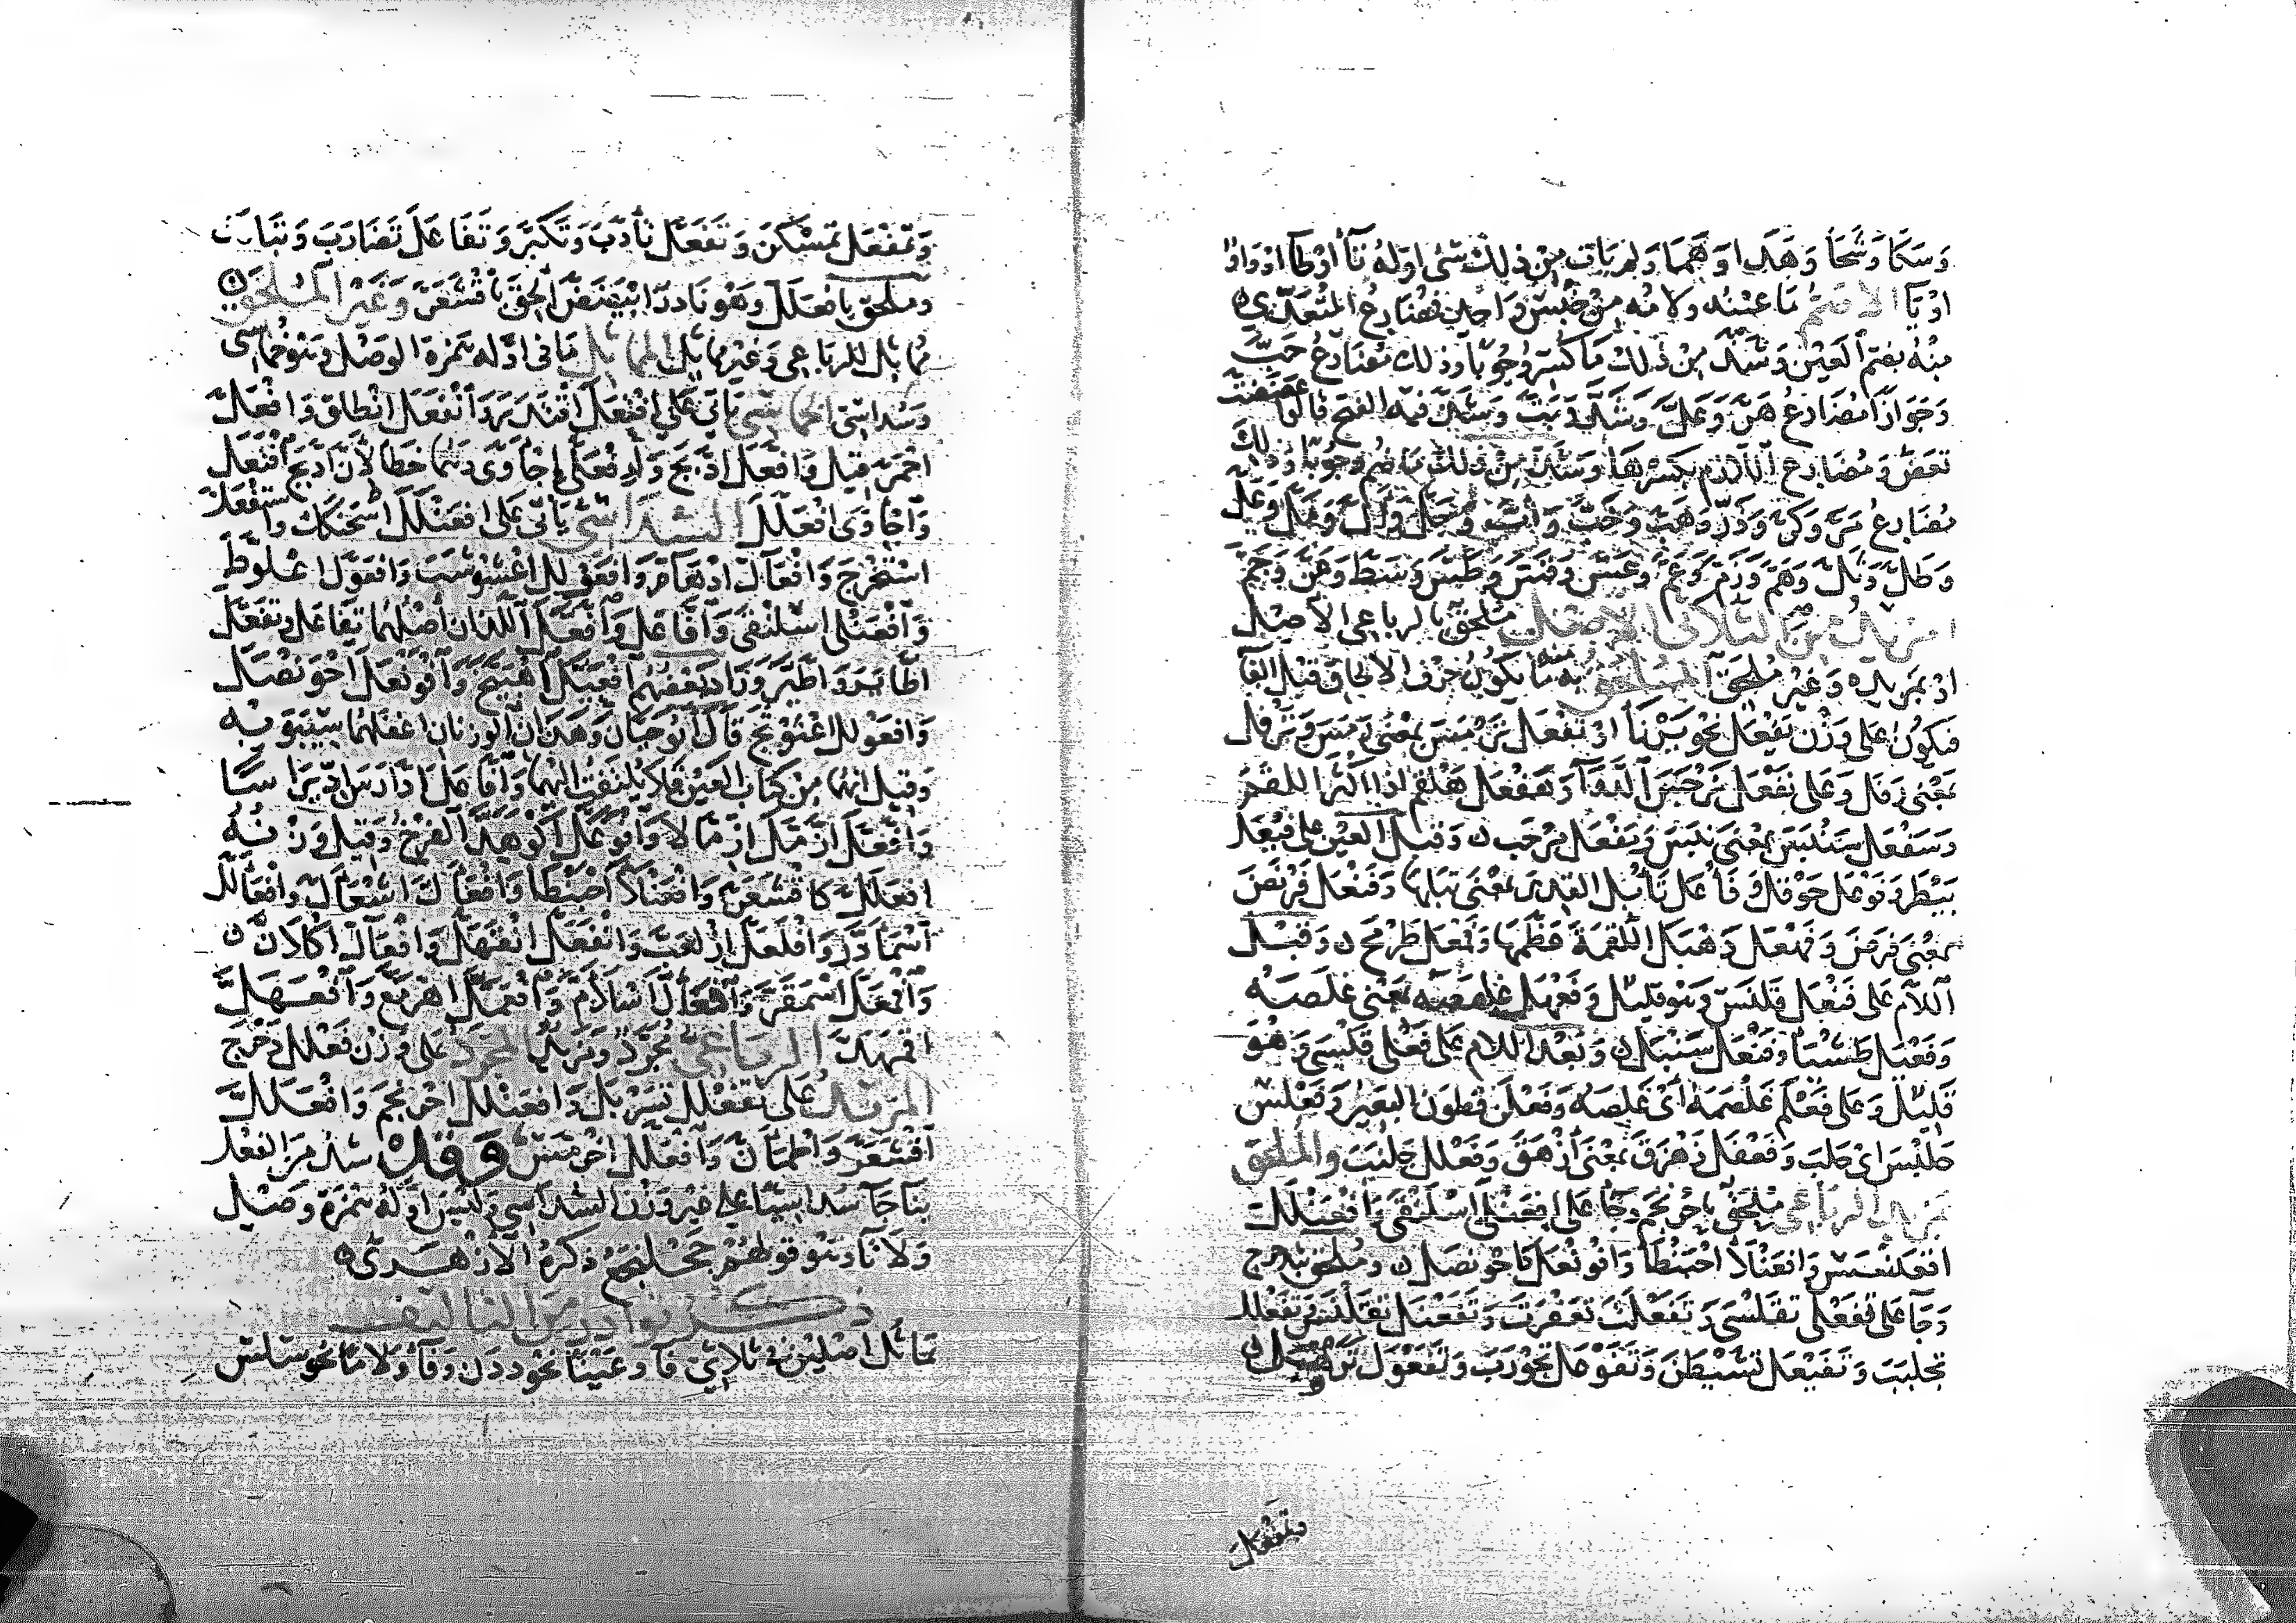 وَسَكَا وَشَحَا وَهَدَا وَهَمَا وَلم يَات مِنْ ذلِكَ شَى اوله تَآ اوْ طَا او وَاوٌ
اوْ يَآ الاصم مَا عينه ولامه مِنْ جنس وَاحِد فمضَارع المتعَدّى
مِنْهُ بضم العَيْن وَشَذَّ مِنْ ذلكَ مَا كُسِرَ وُجُوبًا وذلك مُضَارِعُ حَبَّ
وَجَوَازًا مُضَارِعُ هَرَّ وَعَلَّ وَشَدَّ وَبَتَّ وَشَذَّ فيه الفتح قالوا عَضَضْتَ
تَعَضّ وَمُضَارِع اللازم بكسرِهَا وَشَذَّ مِنْ ذلِكَ مَا ضُم وجُوبًا وَذلِكَ
مُضَارِعُ مَرَّ وَكَرَّ وَذَرَّ وَهَبَّ وَخَبَّ وَأبَّ وَجَلَّ وَألَّ وَمَلَّ وَعَلَّ
وَطَلَّ وَثلَّ وَهَمَّ وَزَمَّ وَعَمَّ وَعَسَّ وَقَسَّ وَطَشَّ وَشَطَّ وَجَنَّ وَجَمَّ
المزيد مِنَ الثلاثى الاصل ملحق بالرباعى الاصل
اوْ بمَزيده وَغَير مُلحَق الملحق به مَا يَكُونُ حَرْف الالحاق قبل الفآ
فيَكوُن على وَزْن يَفْعَل نحو يَرْنَأ اوْ تَفْعَل تَرْمَسَ بمعْنى رَمَسَ وَتَرْفَل
بمَعْنى رَفَل وَعَلى نَفْعَل نَرْجَسَ الدَّوَآ وَهَفْعَل هَلْقَم اذا اكْبَرَ اللقم
وَسَفْعَل سَنْبَسَ بمعْنى نَبَسَ وَمَفْعَل مَرْحَب وَقبل العَيْن على فَيْعَل
بَيْطَر وَفَوْعَل حَوْقَل وَفَاْعَل تَأبَل القدر بمَعْنى تبَلهَا وَفَنْعَل فَرْنَصَ
بمَعْنى فرَصَ وَفَهْعَل دَهْبَل اللّقمَةَ عَظَّمهَا وَفَمْعَل طَرْمَحَ وَقبْل
اللام عَلى فَعْنَل قَلْنَسَ وَهو قليل وَفَعْهَل غَلْهَصَهُ بمَعْنى غَلَصَهُ
وَفَعْيَل طَشْيَأ وَفَنْعَل سَنْبَل وَبَعْد اللام عَلى فَعْلى قَلْسَى وَهُوَ
قَلِيْل وَعَلى فَعْلَم غَلْصَمَهُ أىْ غَلَصَهُ وَفَعْلَن قَطْرَن البَعِيْرَ وَفَعْلَسَ
خَلْبَسَ اىْ خَلبَ وَفَعْفَل زَهْزَقَ بمعْنى أزْهَقَ وَفَعْلَل جَلْبَبَ وَالملحق
بمَزيد الرباعى مُلحَقٌ باحْرنجَم وَجَا عَلى افعَنْلَى اسْلَنْقَى وَافعَنْلَلَ
اقعَنْسَسَ وَافعَنْلَأ احْبَنْطَأ وَافْوَنْعَل كَاحْوَنْصَل وَمُلحَق بتدَحْرَجَ
وَجَآ عَلى تَفَعْلَى تقَلْسَى وَتَفَعْلَتَ تَعَفْرَتَ وَتَفَعْنَل تقَلْنَسَ وَتَفَعْلَلَ
تجَلبَبَ وَتَفَيْعَل تَشَيْطَنَ وَتَفَوْعَل تجَوْرَبَ وَتَفَعْوَل تَرَهْوَك
وتمفعل
وَتمَفْعَل تمَسْكَنَ وَتَفَعَّل تأدّبَ وَتَكَبَّر وَتَفَاعَلَ تَضَارَبَ وَتَبَارَت
وملحَق بافعَلَلّ وَهُو نَادرٌ ابْيَضَضّ الحق باقْشَعَرَّ وَغَيْر الملحق
مُمَاثل للرباعى وَغير مماثل المماثل مَا فى اوَّله همزة الوَصْل وَهُو خُماسى
وَسُدَاسى الخماسى يَاتى عَلى افْتَعَل اقْتَدَر وَانْفَعَل انْطلق وَافْعَلّ
احْمَرّ قيل وَافَّعَل ادّبج وَافْعَلى اجْأَوَى وَهُما خَطَأ لأن ادّبج افْتَعَل
وَاجْأوَى افعَلَلَ السداسى يَاتى عَلى افْعَنْلَل اسْحَنْكَكَ وَاستَفْعَلَ
اسْتَخْرَجَ وَافْعَالّ ادْهَامّ وَافعَوْعَل اعْشَوْشَبَ وَافْعَوَّل اعْلَوَّطَ
وَافْعَنْلى اسْلَنْقَى وَافَّاعَل وَافَّعَّل اللذان اصْلهُما تفَاعَل وتفَعَّل
اطَّايَر وَاطَّيَّر وَزَادَ بَعْضهُم افعَيَّل اهْبَيَّخَ وَافْوَنْعَل احْوَنْصَل
وَافعَوْلَل اعْثَوْجَجَ قَال أبُو حَيَّان وَهَذانِ الوزنانِ اغفَلَهُما سِيْبَوَيْهِ
وَقيلَ انّهُما مِنْ كِتاب العَيْن فَلا يُلْتَفَتُ اليْهما وَافَّاعَل ادَّارَس ادِّرَاسًا
وَافَّعَّل ازَّمَّل ازِّمَّالا وَافْوَعَلّ اكْوَهَدّ الفرْخ وَقيلَ وَزْنُهُ
افعَلَلّ كاقْشَعَرّ وَافعَنْلأ احْبَنْطأ وَافْعَألّ اشْعَألّ وَافعَأْلَل
اسْمَأدَرّ وَافْلَعَلّ ازْلَعَبّ وَانْفَعَلّ انْقَهَلّ وَافْعَالَّ اكْلانَّ
وَافْمَعَلّ اسْمَقَرَّ وَافْعَالَّ اسْلأَمَّ وَافْعَمَّل اهْرَمَّعَ وَافْعَهَلّ
اقمَهَدّ الرباعى مجرّد وَمَزيد المجرَّد عَلى وَزْن فَعْلَل دَحْرَجَ
المزيد عَلى تَفَعْلَل تَسَرْبَل وَافعَنْلَل احْرنجَم وَافْعَلَلَّ
اقْشَعَرّ وَاطمَأنّ وَافْعَلَّل اخْرَمَّسَ وَقد شذ مِنَ الفعْل
بنَآ جَآ سُدَاسِيًّا عَلى غير وَزْن السداسى وَليْسَ اوّلهُ همزَة وَصْل
وَلا تَآ وَهو قولهُمْ جَحْلَنْجَعَ ذكرَهُ الأزْهَرى
ذكر نوادر من التاليف
تمَاثل اصْليْن فى ثلاثى فآ وعَيْنًا نحْو دَدَن وَفآ وَلامًا نحْو سَلسَ